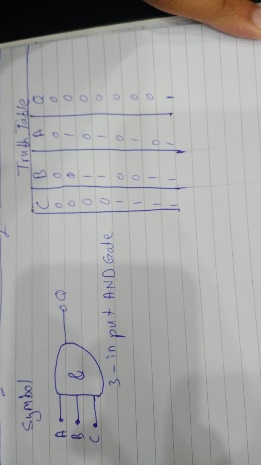 Symbol
A
B
C
&
Q
3-input AND Gate
Truth Table
C B A Q
0 0 0 0
0 0 1 0
0 1 0 0
0 1 1 0
1 0 0 0
1 0 1 0
1 1 0 0
1 1 1 1